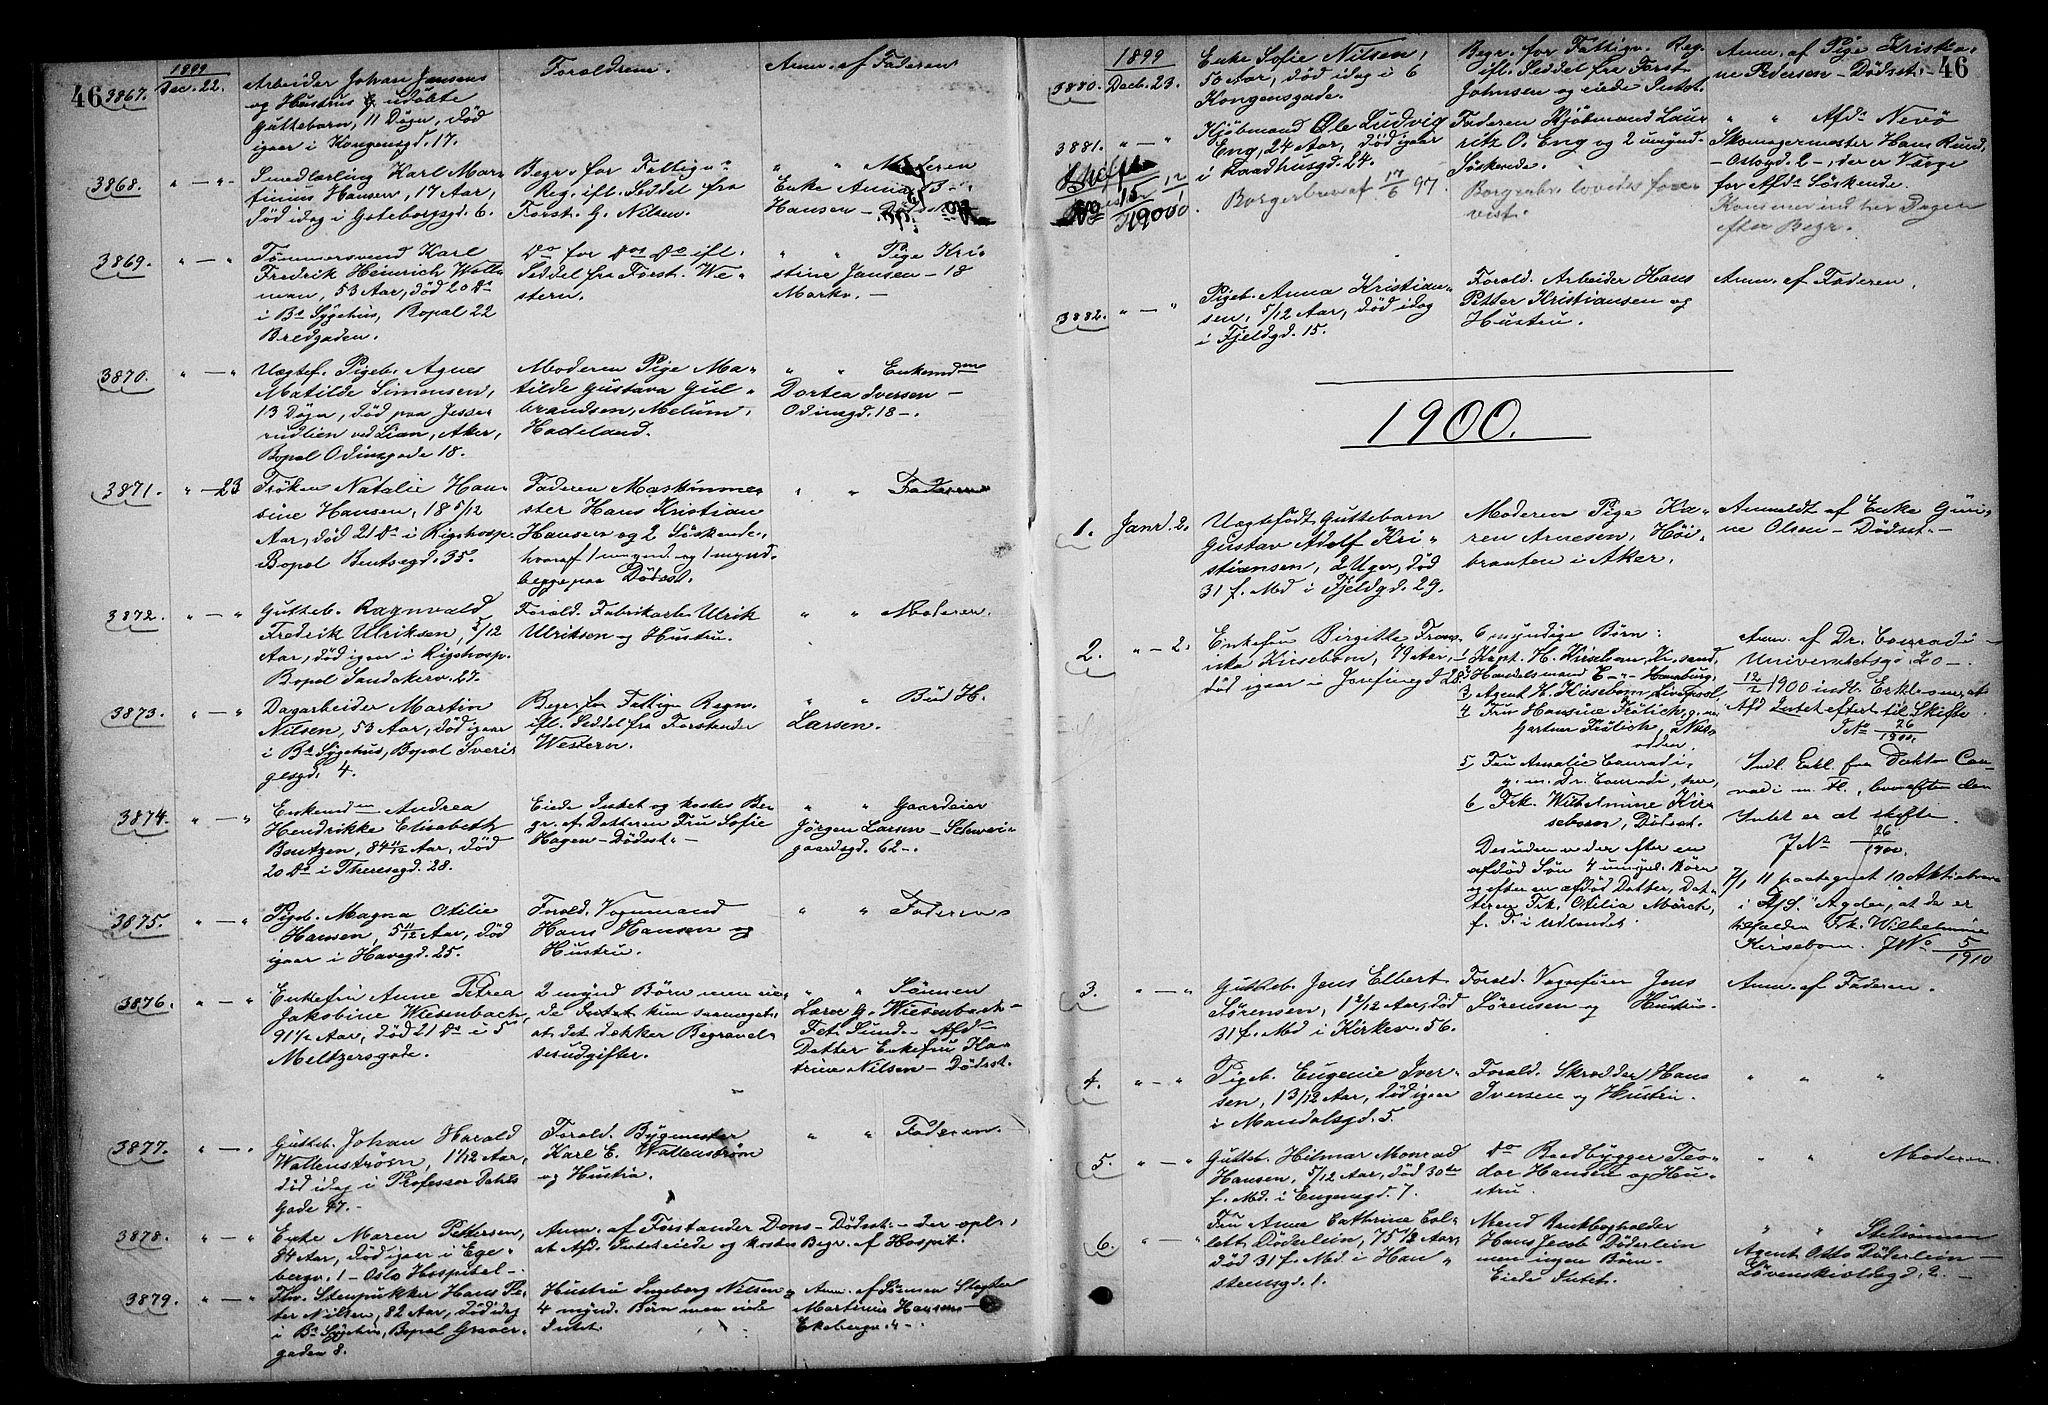 46
1899
3867. Dec. 22. Arbeider Johan Jansens
og Hustrus udöbte
Guttebarn, 11 Døgn, död
igaar i Kongensgd. 17.
Forældrene.
Anm. af Faderen
3868. " — " Smedlærling Karl Mar-
tinius Hansen, 17 Aar,
död idag i Goteborgsgd. 6.
Begr. for Fattigv.
Reg. ifl. Seddel fra
Forst. G. Nilsen.
" " Moderen
Enke Anna
Hansen — Dödsst.
3869. " — " Tömmersvend Karl
Fredrik Heinrich Wolt-
man, 53 Aar, död 20 Ds
i Bs Sygehus, Bopæl 22
Bredgaden.
Do for Dos Do ifl.
Seddel fra Forst. We-
stern.
" " Pige Kri-
stine Jansen — 18
Markv. —
3870. " — " Uægtef. Pigeb. Agnes
Matilde Simonsen,
13 Døgn, död paa Jesse-
rudlien ved Lian, Aker,
Bopæl Odinsgade 18.
Moderen Pige Ma-
tilde Gustava Gul-
brandsen, Melum,
Hadeland.
" " Enkemdm
Dortea Iversen —
Odinsgd. 18 —.
3871. " — 23 Fröken Natalie Han-
sine Hansen, 18 5/12
Aar, död 21 Ds i Rigshosp.
Bopæl Bentsegd. 35.
Faderen Maskinme-
ster Hans Kristian
Hansen og 2 Söskende,
hvoraf 1 umynd. og 1 mynd.
begge paa Dödsst.
" " Faderen
3872. " — " Gutteb. Ragnvald
Fredrik Ulriksen, 5/12
Aar, död igaar i Rigshosp.
Bopæl Sandakerv. 27.
Foræld. Fabrikarb. Ulrik
Ulriksen og Hustru.
" " Moderen.
3873. " — " Dagarbeider Martin
Nilsen, 53 Aar, död igaar
i Bs Sygehus, Bopæl Sveri-
gesgd. 4.
Begr. for Fattigv. Regn.
ifl. Seddel fra Forstander
Western.
" " Bud H.
Larsen.
3874. " — " Enkemdm Andrea
Hendrikke Elisabeth
Bentzen, 84 11/12 Aar, död
20 Ds i Theresegd. 28.
Eiede Intet og kostes Be-
gr. af Datteren Fru Sofie
Hagen — Dödsst. —
" " Gaardeier
Jörgen Larsen — Schwei-
gaardsgd. 62 —.
3875. " — " Pigeb. Magna Otilie
Hansen, 5 11/12 Aar, död
igaar i Havegd. 25.
Foræld. Vognmand
Hans Hansen og
Hustru.
" " Faderen
3876. " — " Enkefru Anne Petrea
Jakobine Wiesenbach,
91 1/2 Aar, död 21 Ds i 5
Meltzersgade.
2 mynd Börn men ei-
ede Intet kun saameget,
at det dækker Begravel-
sesudgifter.
" " Sönnen
Lærer G. Wiesenbach —
Fet. Sund. — Afdm
Datter Enkefru Ka-
trine Nilsen — Dödsst.
3877. " — " Gutteb. Johan Harald
Wallenström, 1 1/12 Aar,
död idag i Professor Dahls
Gade 47. —
Foræld. Bygmester
Karl E. Wallenström
og Hustru.
" " Faderen.
3878. " — " Enke Maren Pettersen,
84 Aar, död igaar i Ege-
bergv. 1 — Oslo Hospital —
Anm. af Forstander Dons — Dödsst. — der opl.,
at Afd. Intet eiede og kostes Begr. af Hospit.
3879. " — " Fhv. Stenpukker Hans Pe-
ter Nilsen, 82 Aar, död idag
i Bs Sygehus, Bopæl Graver-
gaden 8.
Hustru Ingeborg Nilsen og
4 mynd. Börn men eiede
Intet.
Anm. af Sönnen Slagter
Martinius Hansen —
Ekebergv. 4 —.
46
1899
3880. Decb. 23. Enke Sofie Nilsen,
50 Aar, död idag i 6
Kongensgade.
Begr. for Fattigv. Reg.
ifl. Seddel fra Forst.
Johnsen og eiede Intet.
Anm. af Pige Kristia-
ne Pedersen — Dödsst. —
3881. " — " Kjöbmand Ole Ludvig
Eng, 24 Aar, död igaar
i Raadhusgd. 24.
Borgerbrev af 17/6 97.
Faderen Kjöbmand Lau-
ritz O. Eng og 2 umynd.
Söskende.
Borgerbr. lovedes fore-
vist.
" " Afds Nevö
Skomagermester Hans Rund,
— Oslogd. 2 —, der er Værge
for Afds Söskende.
Kommer ind her Dagen
efter Begr.
15/1900
3882. " — " Pigeb. Anna Kristian-
sen, 5/12 Aar, död idag
i Fjeldgd. 15.
Foræld. Arbeider Hans
Petter Kristiansen og
Hustru.
Anm. af Faderen.
1900.
1. Janr. 2. Uægtefödt Guttebarn
Gustav Adolf Kri-
stiansen, 2 Uger, död
31 f. Md i Fjeldgd. 29.
Moderen Pige Ka-
ren Arnesen, Höi-
braaten i Aker.
Anmeldt af Enke Guri-
ne Olsen — Dödsst. —
2. " — 2. Enkefru Birgitte Fran-
ciska Kirsebom, 79 Aar,
död igaar i Josefinegd 28.
6 myndige Börn:
1 Kapt. H. Kirsebom, Kr.sand,
2 Handelsmand E — " — Hamburg,
3 Agent K. Kirsebom, Liverpool
4 Fru Hansine Frölich, g. m.
Gartner Frölich, Not-
odden.
5 Fru Amalie Conradi,
g. m. Dr. Conradi, her,
6 Frk. Wilhelmine Kir-
sebom, Dödsst.
Desuden er der efter en
afdöd Sön 4 umynd. Börn
og efter en afdöd Datter, Dat-
teren Frk. Otilia Mörch,
f. T. i Udlandet.
Anm. af Dr. Conradi —
Universitetsgd. 20 —.
12/2 1900 indk. Erklæring, at
Afd Intet efterl. til Skifte
JNo 26/1900.
Indl. Erkl. fra Doktor Con-
radi m. Fl., hvorefter der
Intet er at skifte.
JNo 26/1900.
7/1 11 paategnet 10 Aktiebreve
i A/S. "Agden", at de er
tilfalden Frk. Wilhelmine
Kirsebom. JNo 5/1910
3. " — " Gutteb. Jens Elbert
Sörensen, 1 7/12 Aar, död
31 f. Md i Kirkev. 56.
Foræld. Vognförer Jens
Sörensen og Hustru
Anm. af Faderen.
4. " — " Pigeb. Eugenie Iver-
sen, 1 3/12 Aar, död igaar
i Mandalsgd. 5.
Foræld. Skrædder Hans
Iversen og Hustru.
" " "
5. " — " Gutteb. Hilmar Monrad
Hansen, 5/12 Aar, död 30te
f. Md. i Eugensgd. 7.
Do Baadbygger Teo-
dor Hansen og Hu-
stru.
" " Moderen.
6. " — " Fru Anna Cathrine Col-
lett Döderlein, 75 5/12 Aar,
död 31 f. Md. i Han-
steensgd. 1.
Mand Bankbogholder
Hans Jacob Döderlein
men ingen Börn.
Eiede Intet.
" " Stedsönnen
Agent Otto Döderlein —
Lövenskioldsgd. 2. —